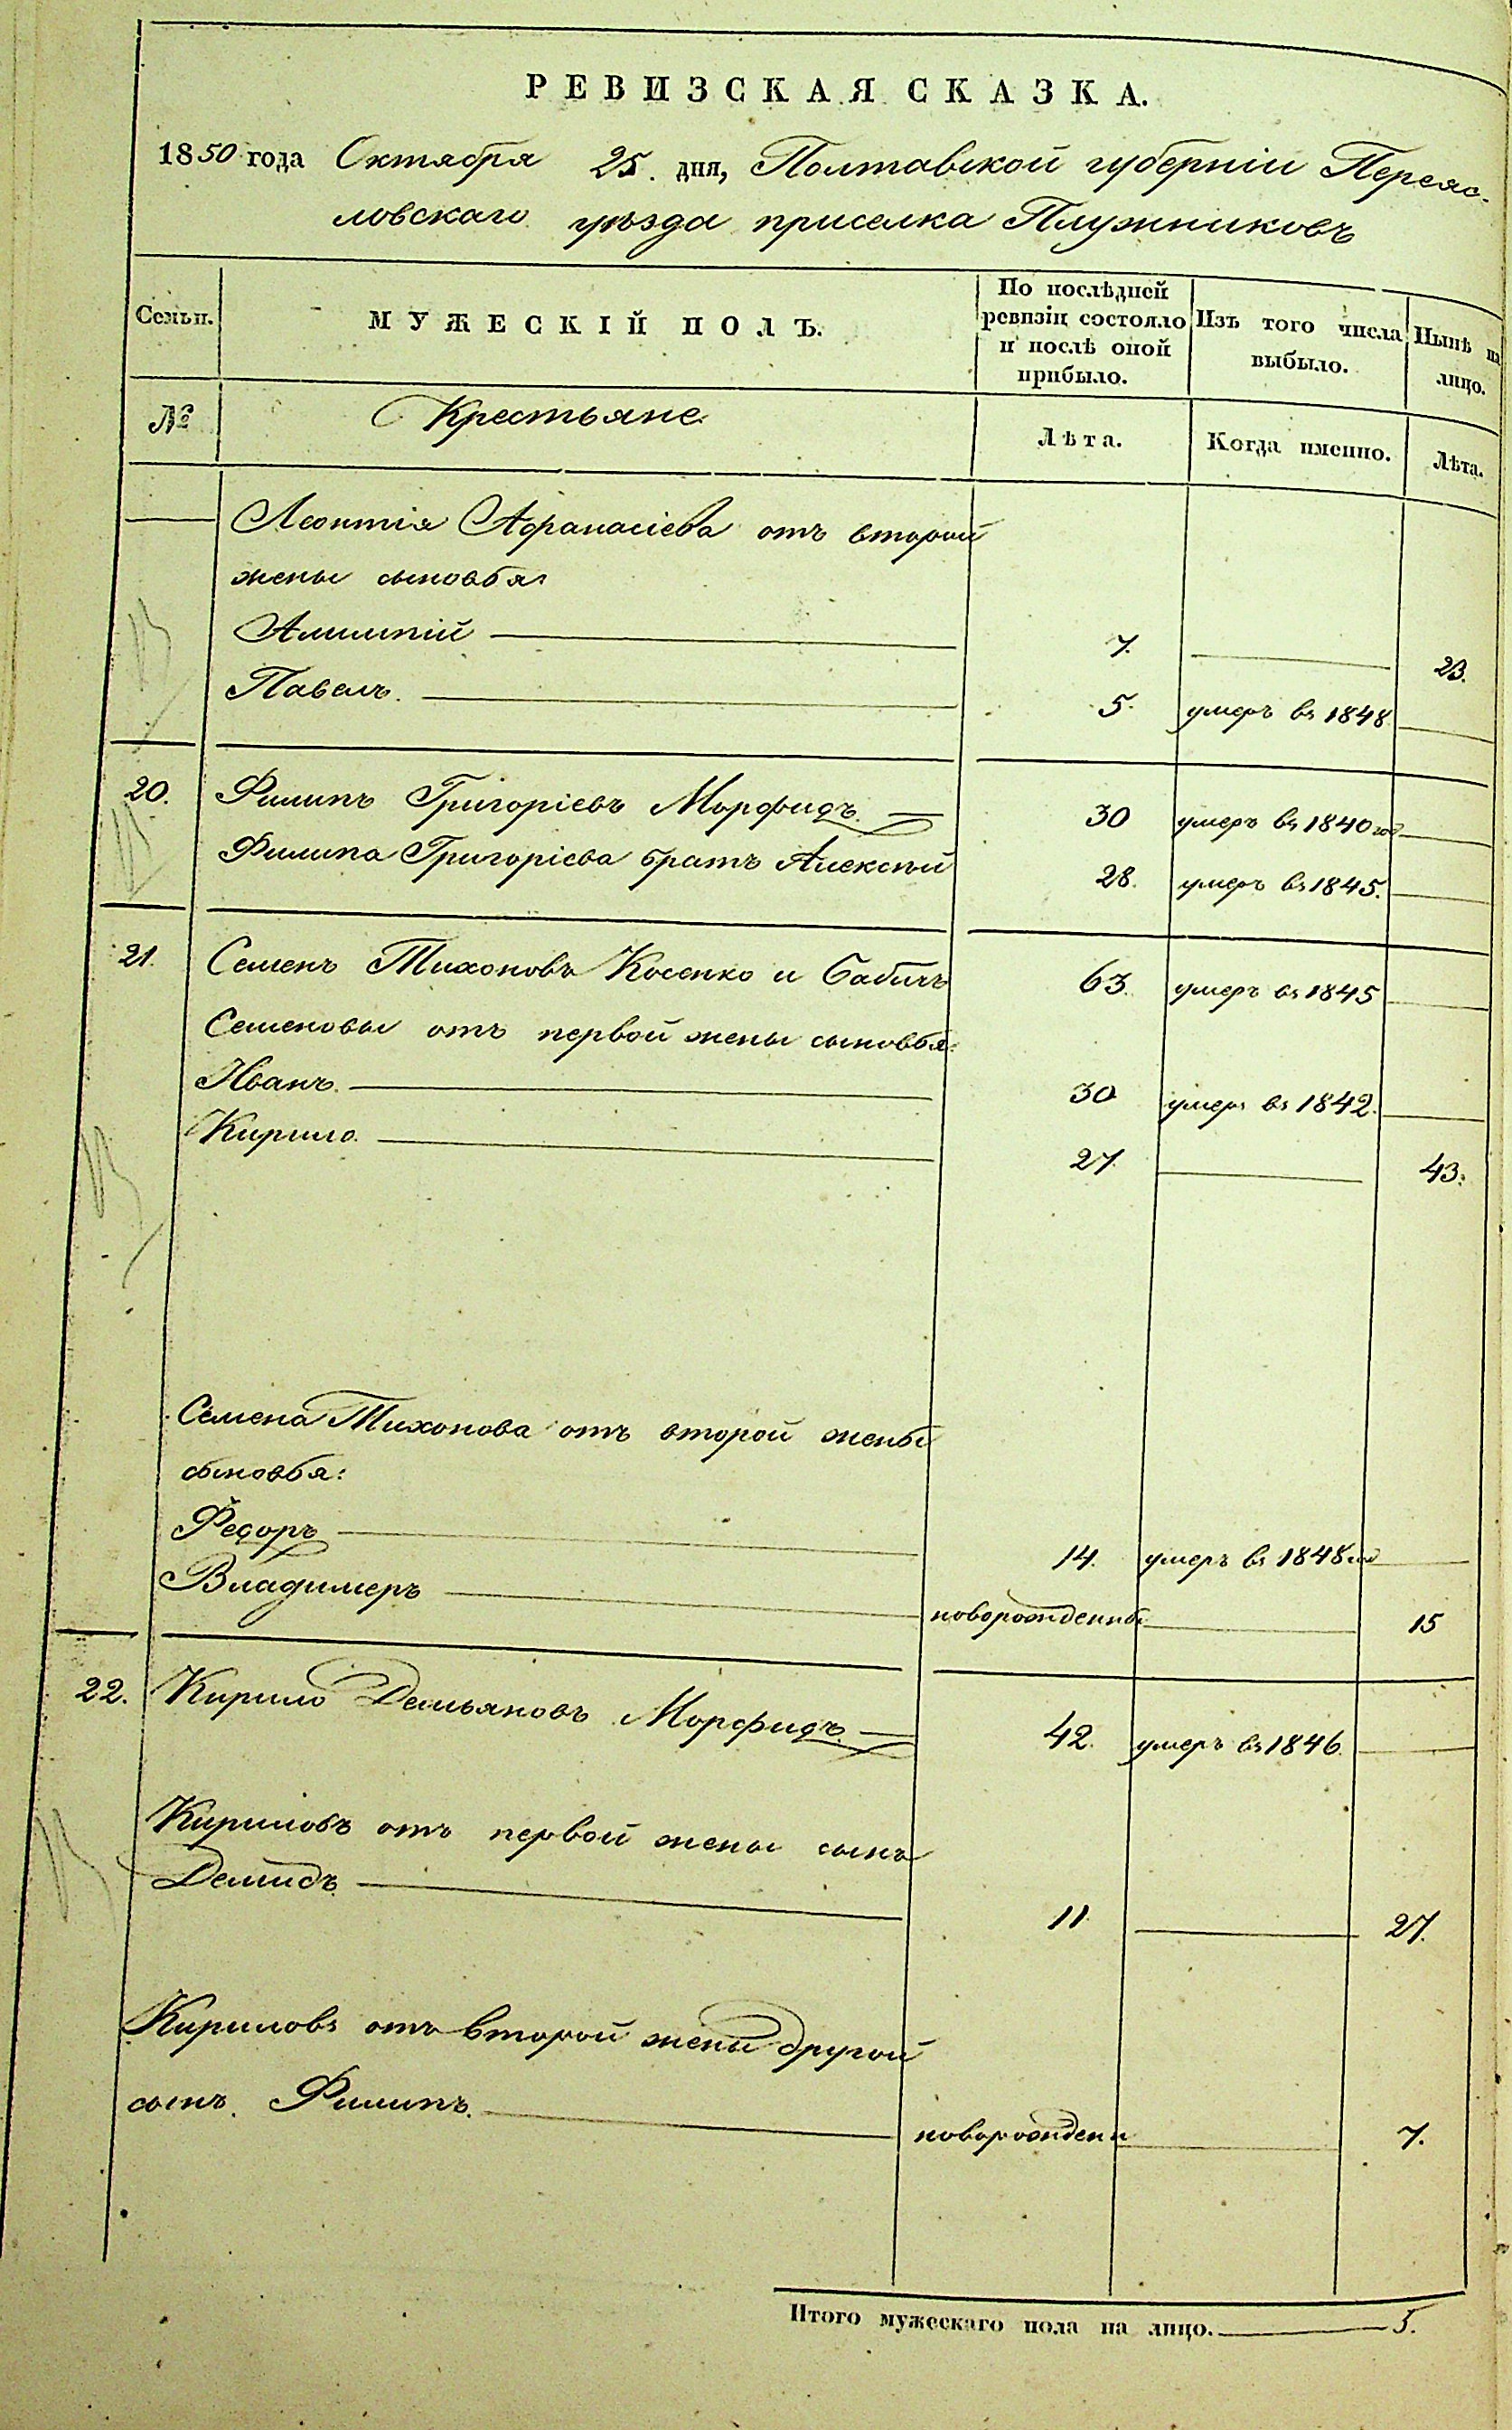 РЕВИЗСКАЯ СКАЗКА.
1850 года Октября 25. дня, Полтавской губерніи Переяс-
ловскаго уѣзда приселка Плужниковъ
Семьи. МУЖЕСКІЙ ПОЛЪ. По послѣдней ревизіи состояло и послѣ оной прибыло. Изъ того числа выбыло. Нынѣ на лицо.
№ Крестьяне Лѣта. Когда именно. Лѣта.
Леонтія Афанасіева отъ второй
жены сыновья:
Алимпій 7. 23.
Павелъ. 5. умеръ въ 1848
20. Филипъ Григоріевъ Морфидъ. 30 умеръ въ 1840 год
Филипа Григоріева братъ Алексѣй 28. умеръ въ 1845.
21. Семенъ Тихоновъ Косенко и Бабичъ 63. умеръ въ 1845
Семеновы отъ первой жены сыновья:
Иванъ. 30 умеръ въ 1842.
Кирило. 27 43.
Семена Тихонова отъ второй жены
сыновья:
Федоръ 14. умеръ въ 1848 год
Владимеръ новорожденны 15
22. Кирило Демьяновъ Морфидъ. 42. умеръ въ 1846.
Кириловъ отъ первой жены сынъ
Демидъ 11 27.
Кириловъ отъ второй жены другой
сынъ. Филипъ. новорожденн 7.
Итого мужескаго пола на лицо. 5.